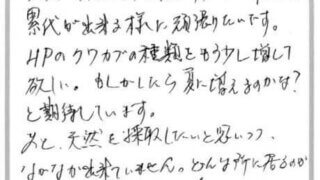 累代が出来る様に頑張りたいです。
HPのクワカブの種類をもう少し増して
欲しい。もしかしたら夏に増えるのかな?
と期待しています。
あと、天然を採取したいと思いつつ、
なかなか出来ていません。どんな所に居るのが